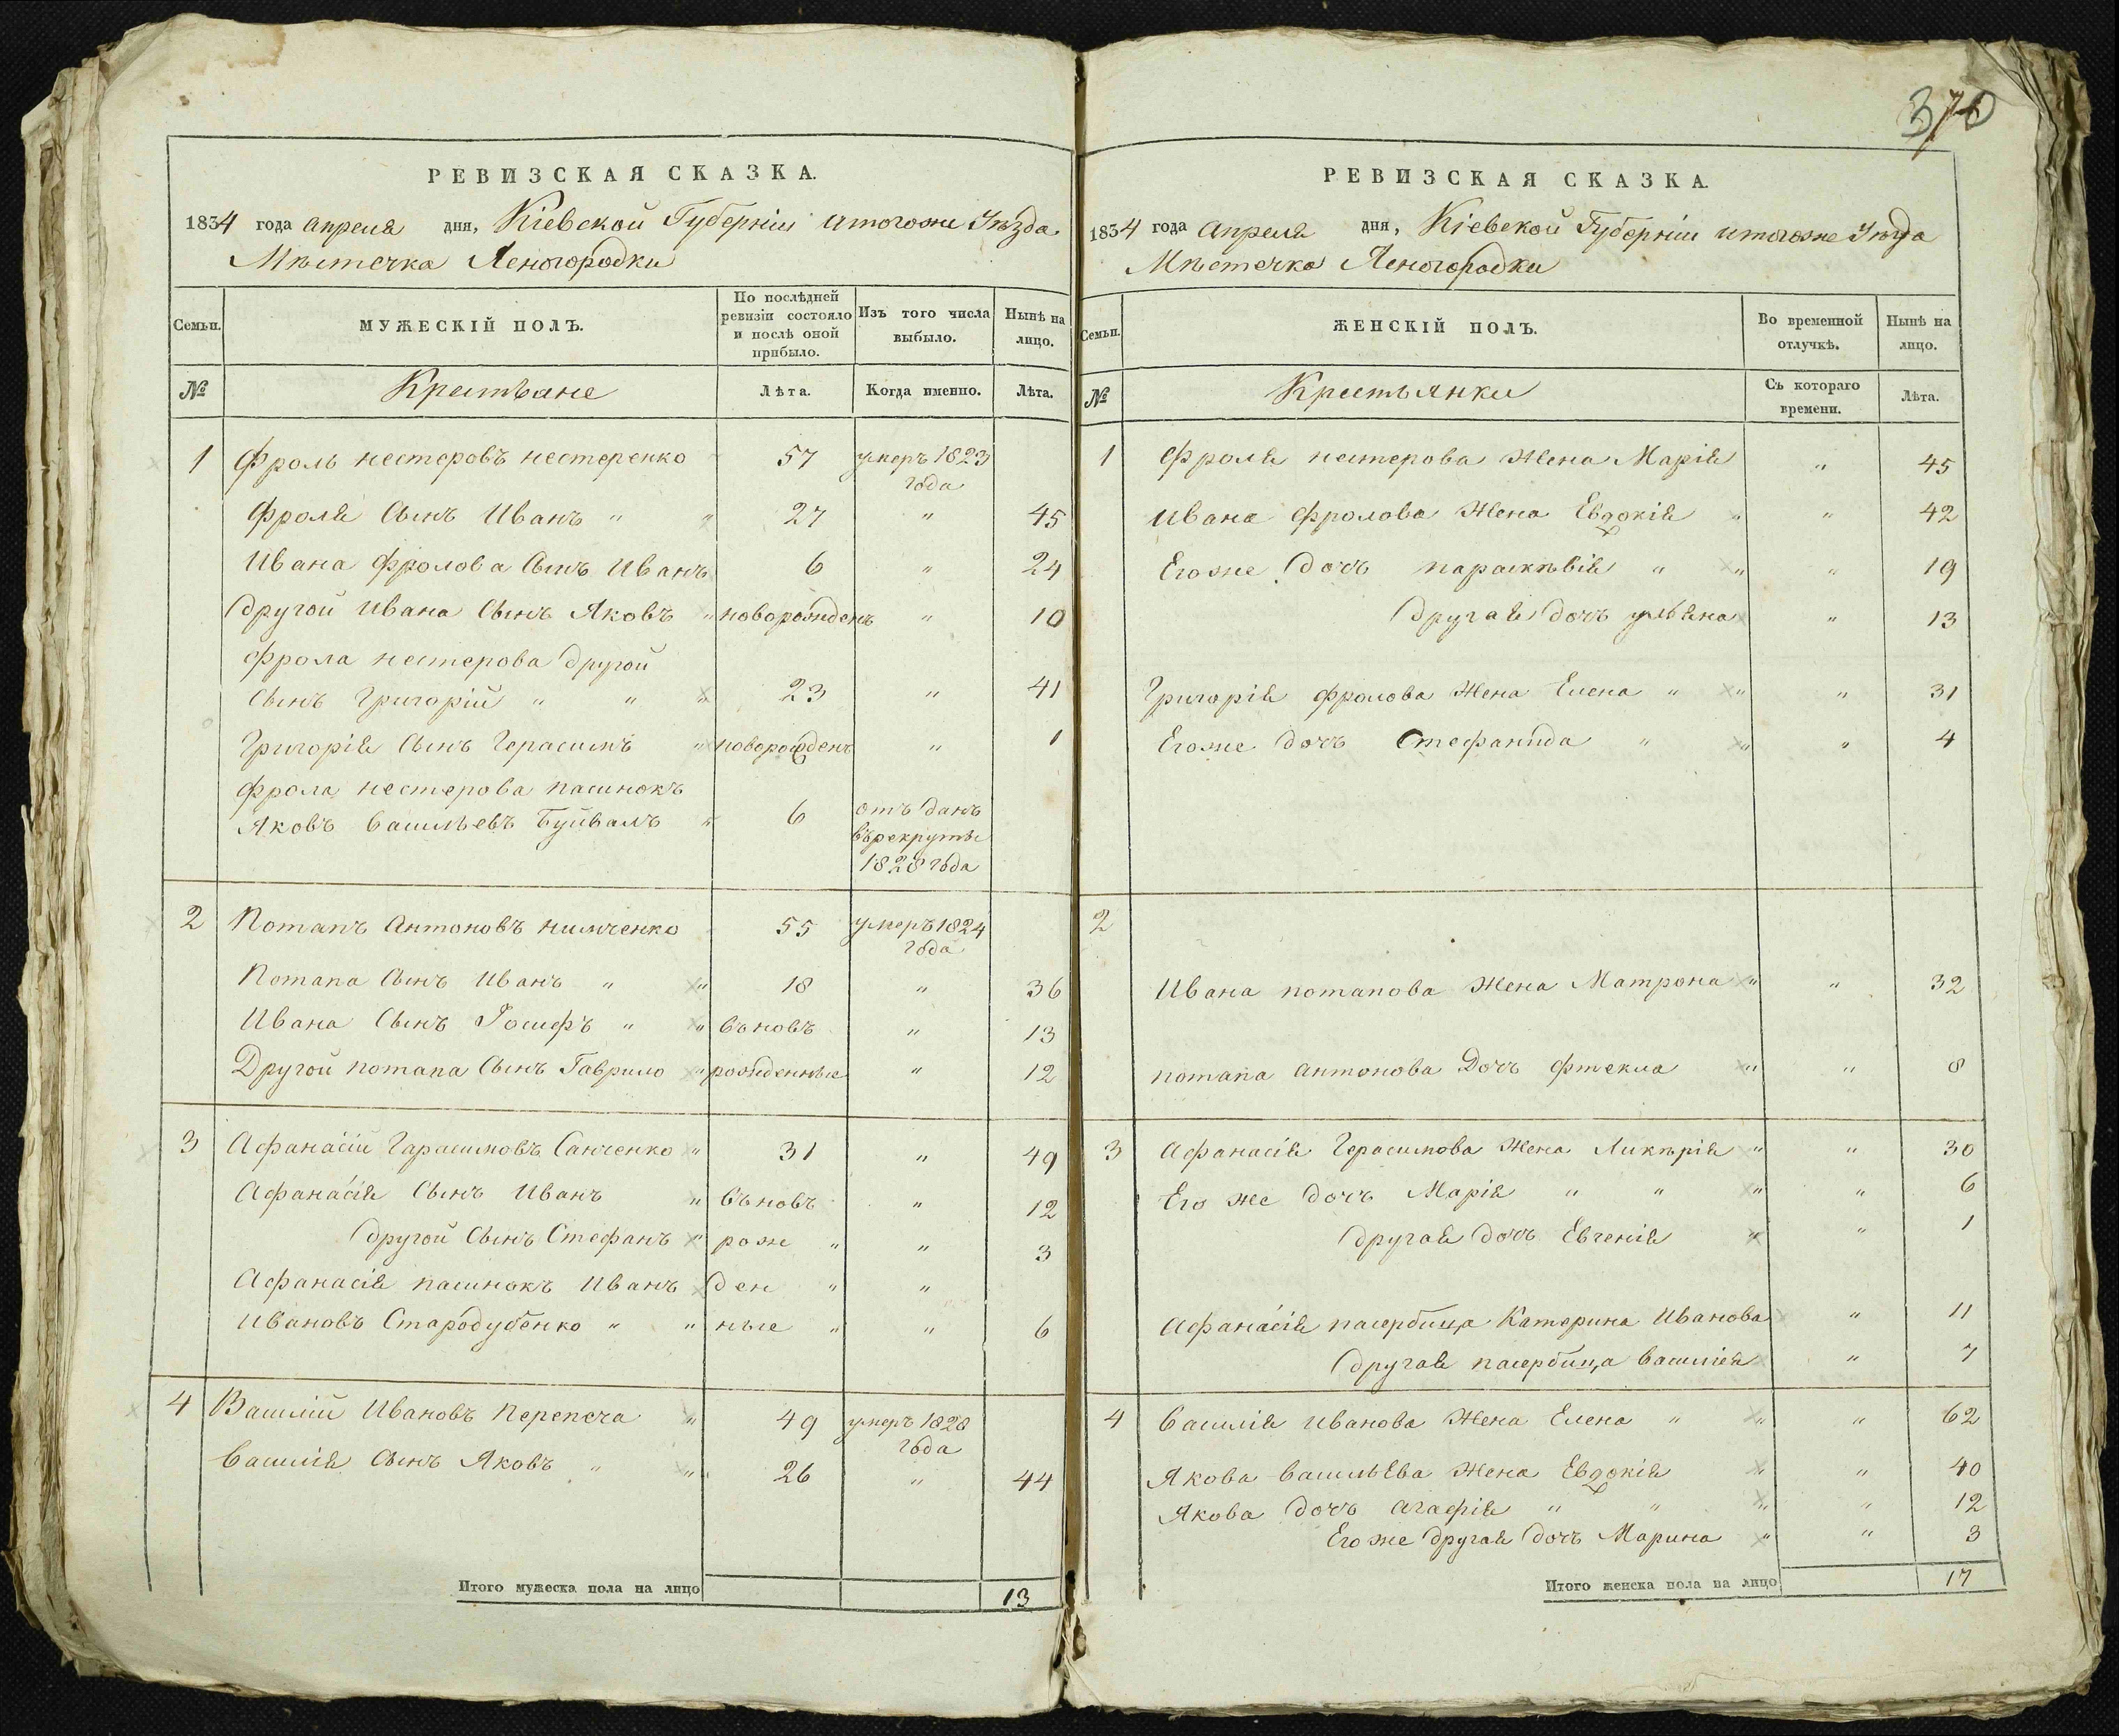 370
РЕВИЗСКАЯ СКАЗКА.
1834 года апреля дня, Кіевской Губерніи итогоже Уѣзда
Мѣстечка Леногородки
Семьи.
МУЖЕСКІЙ ПОЛЪ.
По послѣдней ревизіи состояло и послѣ оной прибыло.
Изъ того числа выбыло.
Нынѣ на лицо.
№
Крестьяне
Лѣта.
Когда именно.
Лѣта.
1 Фролъ нестеровъ нестеренко 57 умеръ 1823 года
Фрола Сынъ Иванъ " " 27 " 45
Ивана Фролова Сынъ Иванъ 6 " 24
Другой Ивана Сынъ Яковъ " новорожденъ " 10
Фрола нестерова другой
Сынъ Григорій " " " 23 " 41
Григорія Сынъ Герасимъ " новорожденъ " 1
Фрола нестерова пасинокъ
Яковъ Васильевъ Буйвалъ " 6 отъ данъ
въ рекруты
1828 года
2 Потапъ Антоновъ нимченко 55 умеръ 1824 года
Потапа Сынъ Иванъ " " 18 " 36
Ивана Сынъ Іосифъ " " въновъ " 13
Другой потапа Сынъ Гаврило " рожденные " 12
3 Афанасій Гарасимовъ Санченко " 31 " 49
Афанасія Сынъ Иванъ " въновъ " 12
другой Сынъ Стефанъ " рож " " 3
Афанасія пасинокъ Иванъ ден " "
Ивановъ Стародубенко " " ные " " 6
4 Василій Ивановъ Перепеча " 49 умеръ 1828 года
Василія Сынъ Яковъ " " 26 " 44
Итого мужеска пола на лицо 13
РЕВИЗСКАЯ СКАЗКА.
1834 года апреля дня, Кіевской Губерніи итогоже Уѣзда
Мѣстечка Леногородки
Семьи.
ЖЕНСКІЙ ПОЛЪ.
Во временной отлучкѣ.
Нынѣ на лицо.
№
Крестьянки
Съ котораго времени.
Лѣта.
1 Фрола нестерова Жена Марія " 45
Ивана Фролова Жена Евдокія " " 42
Егоже дочъ параскѣвія " " " 19
Другая дочъ ульяна " 13
Григорія Фролова Жена Елена " " " 31
Егоже дочъ Стефанида " " " 4
2
Ивана потапова Жена Матрона " " 32
потапа антонова Дочъ Фтекла " " 8
3 Афанасія Герасимова Жена Ликѣрія " " 30
Его же дочъ Марія " " " " 6
другая дочъ Евгенія " " 1
Афанасія пасербица Катерина Иванова " 11
другая пасербица Василія " 7
4 Василія Иванова Жена Елена " " " 62
Якова Васильева Жена Евдокія " " 40
Якова дочъ Агафія " " " " 12
Его же другая дочъ Марина " " 3
Итого женска пола на лицо 17